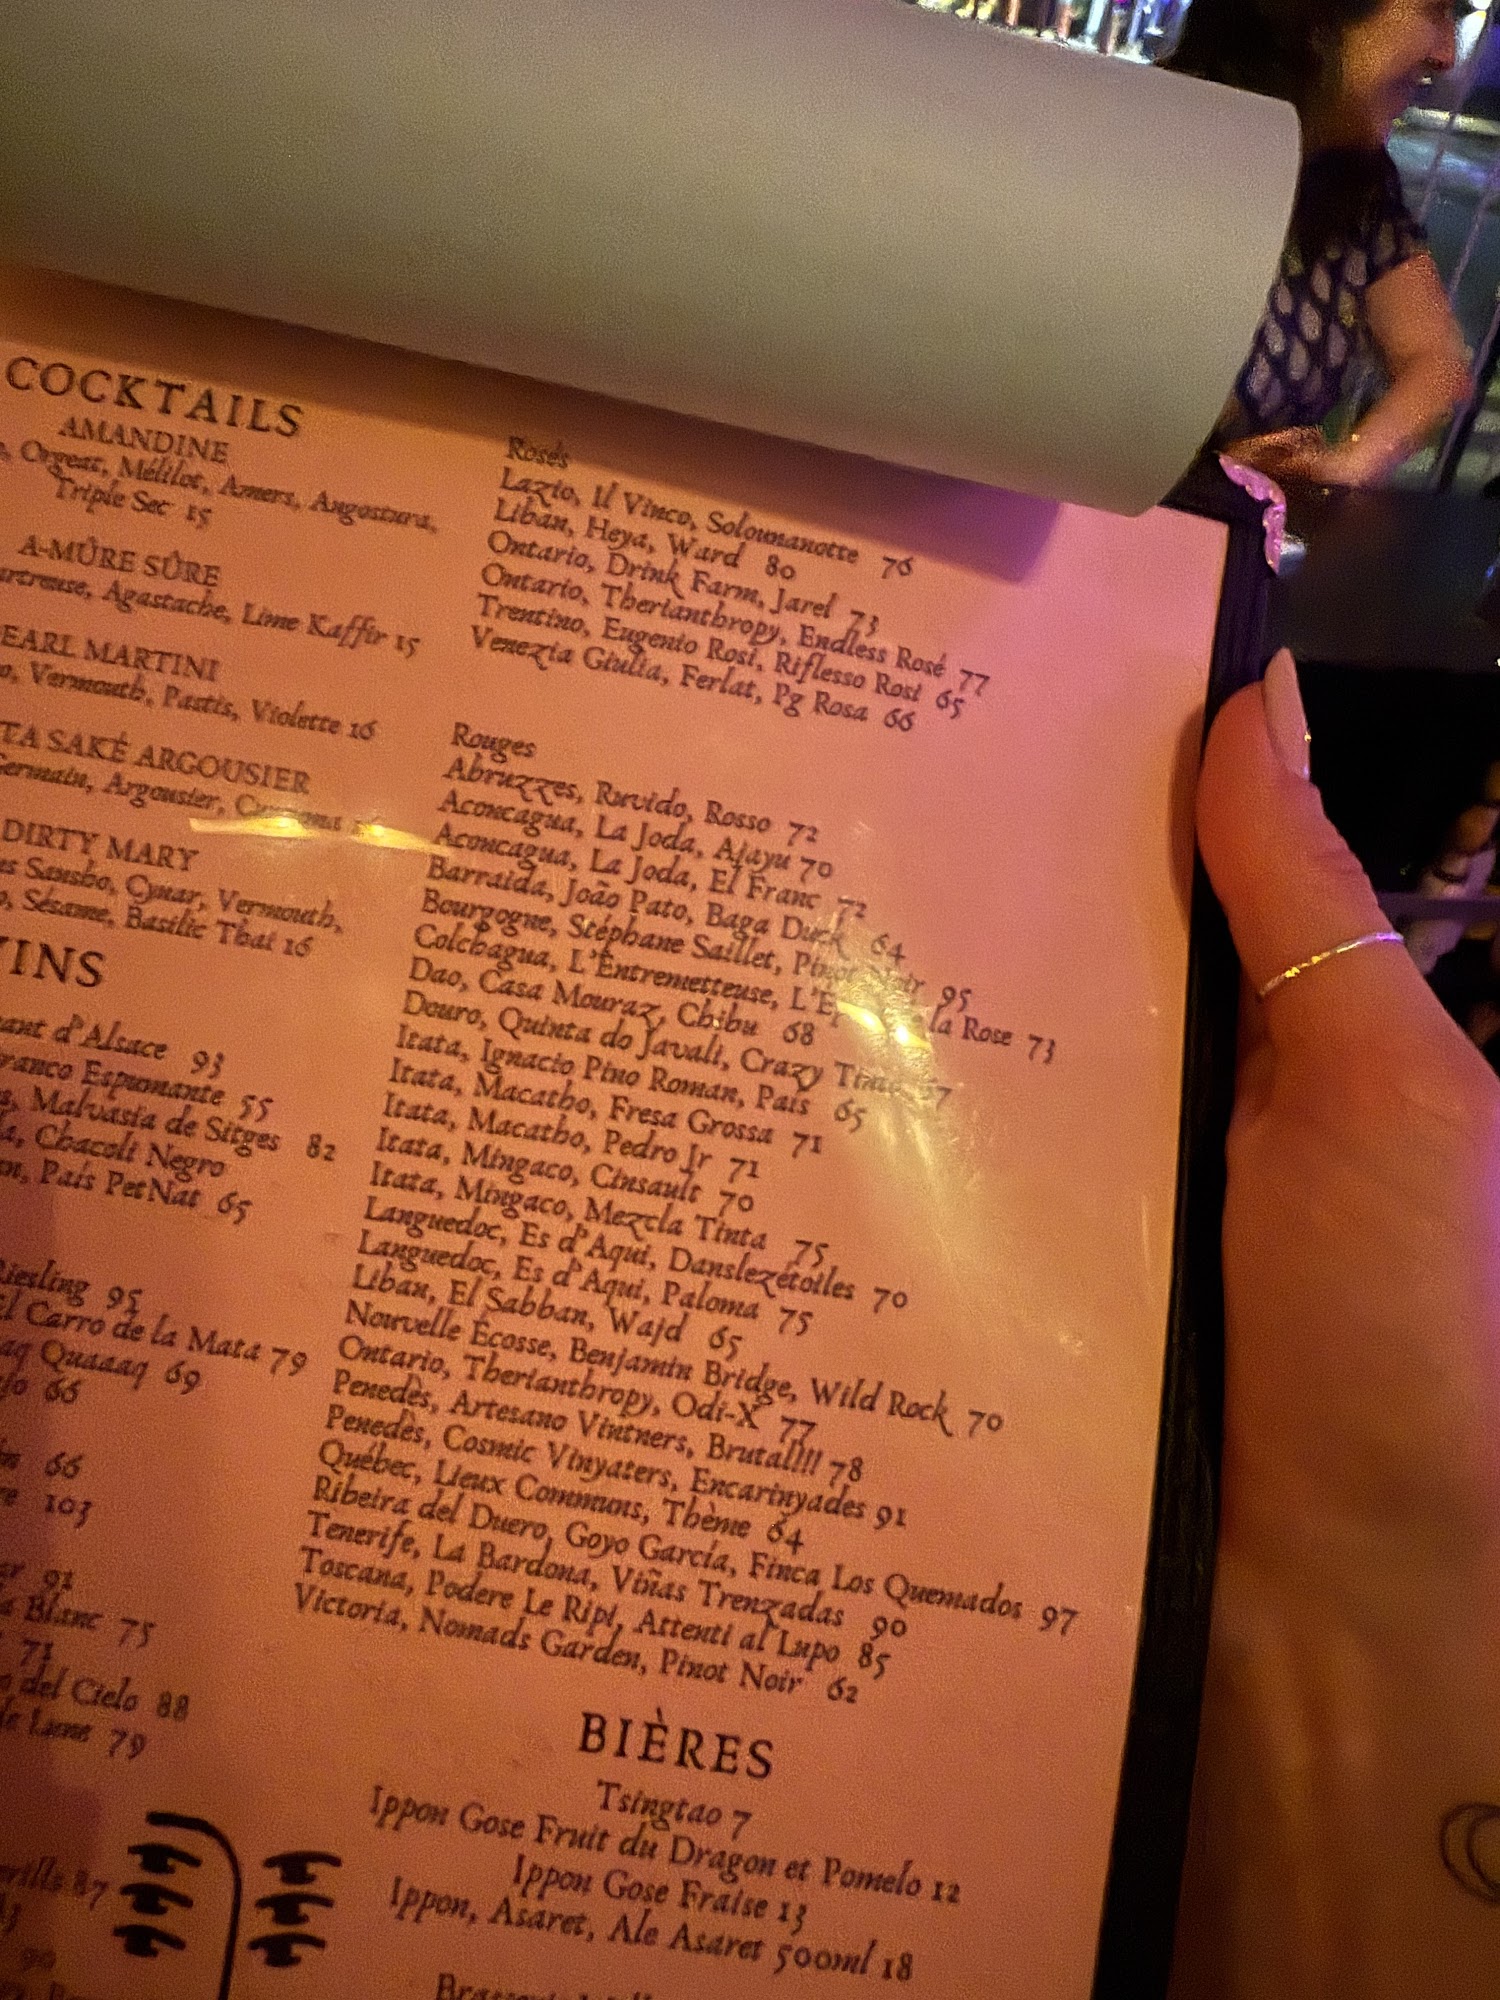 COCKTAILS
AMANDINE
Orgeat, Mélilot, Amers, Angostura,
Triple Sec 15
A-MÛRE SÛRE
Agastache, Lime Kaffir 15
MARTINI
Vermouth, Pastis, Violette 16
SAKÉ ARGOUSIER
Argousier,
DIRTY MARY
Sansho, Cynar, Vermouth,
Sésame, Basilic Thai 16
d'Alsace 93
Espumante 55
Malvasia de Sitges 82
Chacoli Negro
País PetNat 65
Riesling 95
El Carro de la Mata 79
Quaaaq 69
66
66
103
91
Blanc 75
73
del Cielo 88
Lune 79
87
90
Rosés
Lazio, Il Vinco, Solounanotte 76
Liban, Heya, Ward 80
Ontario, Drink Farm, Jarel 73
Ontario, Therianthropy, Endless Rosé 77
Trentino, Eugenio Rosi, Riflesso Rosi 65
Venezia Giulia, Ferlat, Pg Rosa 66
Rouges
Abruzzes, Ruvido, Rosso 72
Aconcagua, La Joda, Ajayu 70
Aconcagua, La Joda, El Franc 72
Barraida, João Pato, Baga Duck 64
Bourgogne, Stéphane Saillet, Pinot Noir 95
Colchagua, L'Entremetteuse, la Rose 73
Dao, Casa Mouraz, Chibu 68
Douro, Quinta do Javali, Crazy Time 67
Itata, Ignacio Pino Roman, País 65
Itata, Macatho, Fresa Grossa 71
Itata, Macatho, Pedro Jr 71
Itata, Mingaco, Cinsault 70
Itata, Mingaco, Mezcla Tinta 75
Languedoc, Es d'Aqui, Danslezétoiles 70
Languedoc, Es d'Aqui, Paloma 75
Liban, El Sabban, Wajd 65
Nouvelle Écosse, Benjamin Bridge, Wild Rock 70
Ontario, Therianthropy, Odi-X 77
Penedès, Artesano Vintners, Brutal!!! 78
Penedès, Cosmic Vinyaters, Encarinyades 91
Québec, Lieux Communs, Thème 64
Ribeira del Duero, Goyo García, Finca Los Quemados 97
Tenerife, La Bardona, Viñas Trenzadas 90
Toscana, Podere Le Ripi, Attenti al Lupo 85
Victoria, Nomads Garden, Pinot Noir 62
BIÈRES
Tsingtao 7
Ippon Gose Fruit du Dragon et Pomelo 12
Ippon Gose Fraise 13
Ippon, Asaret, Ale Asaret 500ml 18